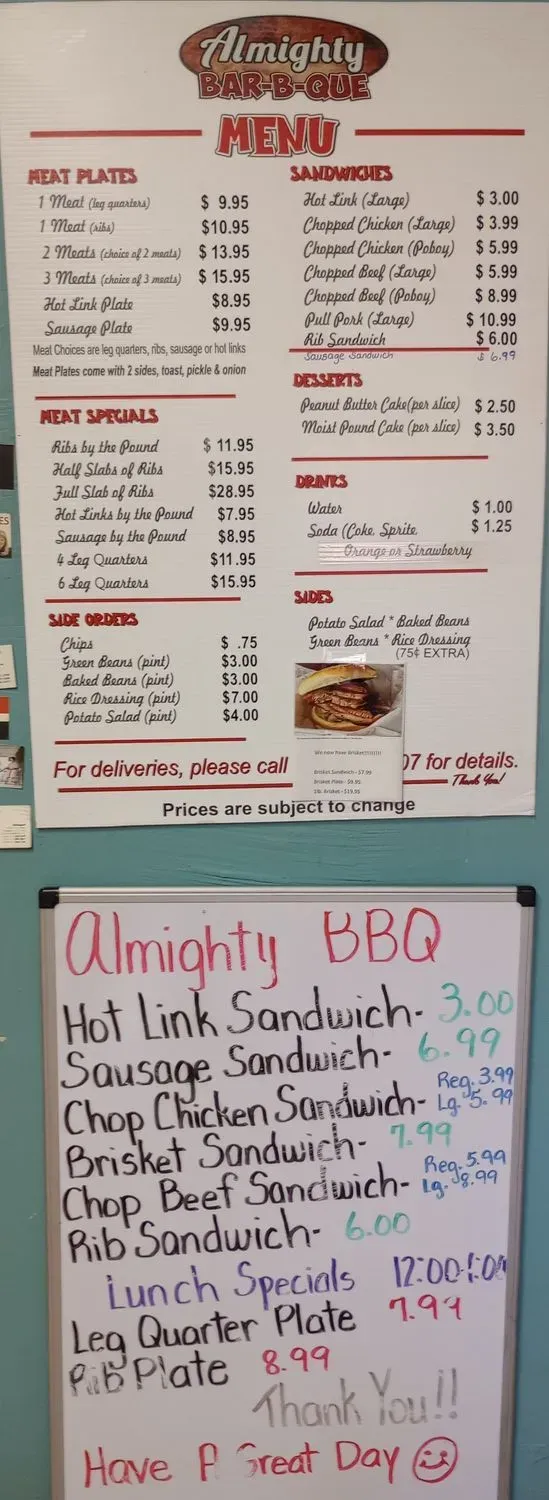 Almighty
BAR-B-QUE
MENU
MEAT PLATES
1 Meat (leg quarters) $ 9.95
1 Meat (ribs) $10.95
2 Meats (choice of 2 meats) $ 13.95
3 Meats (choice of 3 meats) $ 15.95
Hot Link Plate $8.95
Sausage Plate $9.95
Meat Choices are leg quarters, ribs, sausage or hot links
Meat Plates come with 2 sides, toast, pickle & onion
MEAT SPECIALS
Ribs by the Pound $ 11.95
Half Slabs of Ribs $15.95
Full Slab of Ribs $28.95
Hot Links by the Pound $7.95
Sausage by the Pound $8.95
4 Leg Quarters $11.95
6 Leg Quarters $15.95
SIDE ORDERS
Chips $ .75
Green Beans (pint) $3.00
Baked Beans (pint) $3.00
Rice Dressing (pint) $7.00
Potato Salad (pint) $4.00
SANDWICHES
Hot Link (Large) $ 3.00
Chopped Chicken (Large) $ 3.99
Chopped Chicken (Poboy) $ 5.99
Chopped Beef (Large) $ 5.99
Chopped Beef (Poboy) $ 8.99
Pull Pork (Large) $ 10.99
Rib Sandwich $ 6.00
Sausage Sandwich $ 6.99
DESSERTS
Peanut Butter Cake(per slice) $ 2.50
Moist Pound Cake (per slice) $ 3.50
DRINKS
Water $ 1.00
Soda (Coke, Sprite, $ 1.25
Orange or Strawberry
SIDES
Potato Salad * Baked Beans
Green Beans * Rice Dressing
(75¢ EXTRA)
We now have Brisket!!!!!!!!!
Brisket Sandwich - $7.99
Brisket Plate - $9.95
1lb. Brisket - $19.95
For deliveries, please call 07 for details.
Thank You!
Prices are subject to change
Almighty BBQ
Hot Link Sandwich- 3.00
Sausage Sandwich- 6.99
Chop Chicken Sandwich- Reg. 3.99
Lg. 5.99
Brisket Sandwich- 7.99
Chop Beef Sandwich- Reg. 5.99
Lg. 8.99
Rib Sandwich- 6.00
Lunch Specials 12:00-1:00
Leg Quarter Plate 7.99
Rib Plate 8.99
Thank You!!
Have A Great Day